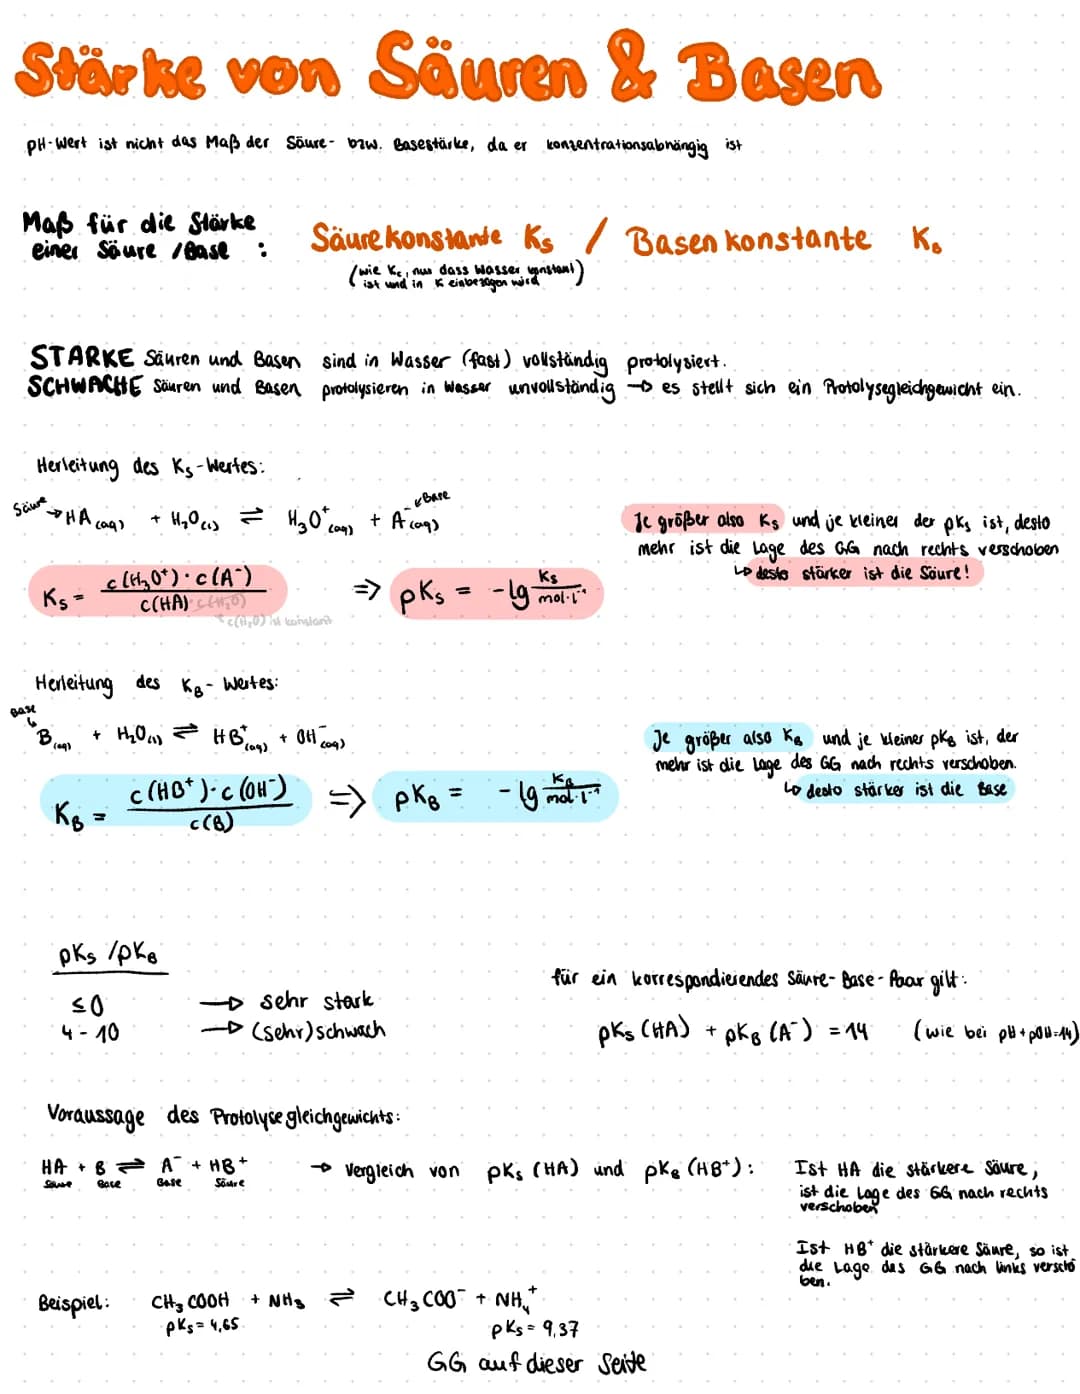 Stärke von Säuren & Basen
pH-Wert ist nicht das Maß der Säure- bzw. Basestärke, da er konzentrationsabhängig ist
Maß für die Stärke
einer Säure / Base :
Säurekonstante Ks / Basenkonstante KB
(wie Kc, nur dass Wasser konstant
ist und in K einbezogen wird)
STARKE Säuren und Basen sind in Wasser (fast) vollständig protolysiert.
SCHWACHE Säuren und Basen protolysieren in Wasser unvollständig → es stellt sich ein Protolysegleichgewicht ein.
Herleitung des Ks-Wertes:
Säure → HA (aq) + H₂O (l) ⇌ H₃O⁺ (aq) + A⁻ (aq) ↙ Base
Ks = c(H₃O⁺) · c(A⁻) / c(HA) · c(H₂O) ⇒ pKs = -lg Ks / mol·l⁻¹
↑ c(H₂O) ist konstant
Je größer also Ks und je kleiner der pKs ist, desto
mehr ist die Lage des GG nach rechts verschoben
↳ desto stärker ist die Säure!
Herleitung des KB-Wertes:
Base
↳ B (aq) + H₂O (l) ⇌ HB⁺ (aq) + OH⁻ (aq)
KB = c(HB⁺) · c(OH⁻) / c(B) ⇒ pKB = -lg KB / mol·l⁻¹
Je größer also KB und je kleiner pKB ist, der
mehr ist die Lage des GG nach rechts verschoben.
↳ desto stärker ist die Base
pKs / pKB
≤ 0 → sehr stark
4 - 10 → (sehr) schwach
für ein korrespondierendes Säure-Base-Paar gilt:
pKs (HA) + pKB (A⁻) = 14 (wie bei pH + pOH = 14)
Voraussage des Protolysegleichgewichts:
HA + B ⇌ A⁻ + HB⁺ → Vergleich von pKs (HA) und pKB (HB⁺):
Säure Base Base Säure
Ist HA die stärkere Säure,
ist die Lage des GG nach rechts
verschoben
Ist HB⁺ die stärkere Säure, so ist
die Lage des GG nach links verscho
ben.
Beispiel: CH₃COOH + NH₃ ⇌ CH₃COO⁻ + NH₄⁺
pKs = 4,65 pKs = 9,37
GG auf dieser Seite